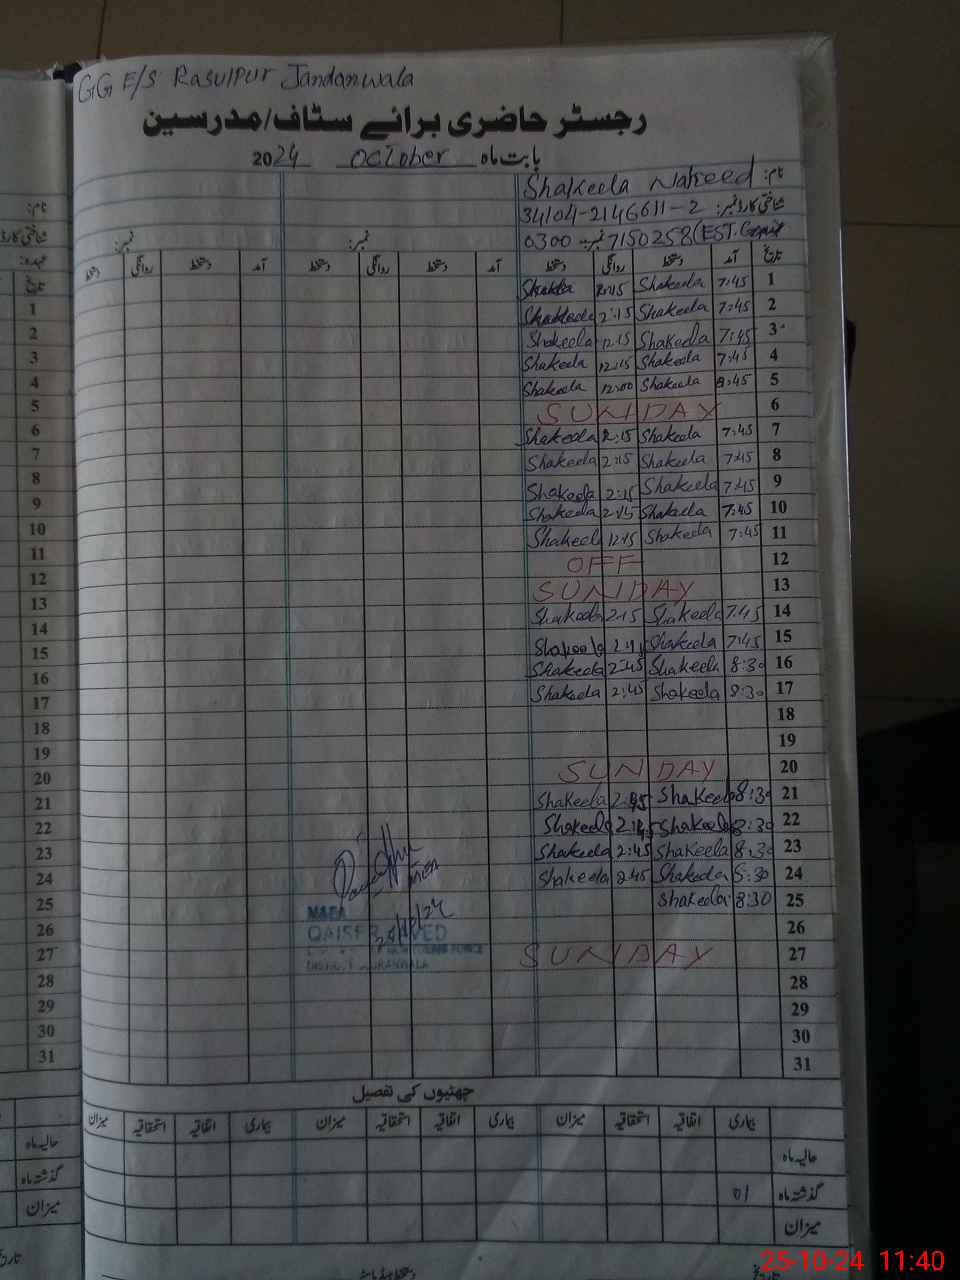 GG E/S Rasulpur Jandanwala
رجسٹر حاضری برائے سٹاف/مدرسین
بابت ماہ October 2024
نام: Shakeela Naheed
شناختی کارڈ نمبر: 34104-2146611-2
نمبر: 0300-7150258 (EST.
نمبر: نمبر:
تاریخ آمد دستخط روانگی دستخط آمد دستخط روانگی دستخط آمد دستخط روانگی دستخط
1 7:45 Shakeela 2:15 Shakeela
2 7:45 Shakeela 2:15 Shakeela
3 7:45 Shakeela 12:15 Shakeela
4 7:45 Shakeela 12:15 Shakeela
5 8:45 Shakeela 12:00 Shakeela
6 SUNDAY
7 7:45 Shakeela 2:15 Shakeela
8 7:45 Shakeela 2:15 Shakeela
9 7:45 Shakeela 2:15 Shakeela
10 7:45 Shakeela 2:15 Shakeela
11 7:45 Shakeela 12:15 Shakeela
12 OFF
13 SUNDAY
14 7:45 Shakeela 2:15 Shakeela
15 7:45 Shakeela Shakeela
16 8:30 Shakeela 2:45 Shakeela
17 8:30 Shakeela 2:45 Shakeela
18
19
20 SUNDAY
21 8:30 Shakeela 2:45 Shakeela
22 8:30 Shakeela 2:45 Shakeela
23 8:30 Shakeela 2:45 Shakeela
24 8:30 Shakeela 2:45 Shakeela
25 8:30 Shakeela
26
27 SUNDAY
28
29
30
31
MEA
QAISER JAVED
چھٹیوں کی تفصیل
بیماری اتفاقیہ استحقاقیہ میزان بیماری اتفاقیہ استحقاقیہ میزان بیماری اتفاقیہ استحقاقیہ میزان
حالیہ ماہ
گذشتہ ماہ 01
میزان
نام:
شناختی کارڈ
عہدہ:
تاریخ
1
2
3
4
5
6
7
8
9
10
11
12
13
14
15
16
17
18
19
20
21
22
23
24
25
26
27
28
29
30
31
حالیہ ماہ
گذشتہ ماہ
میزان
25-10-24 11:40